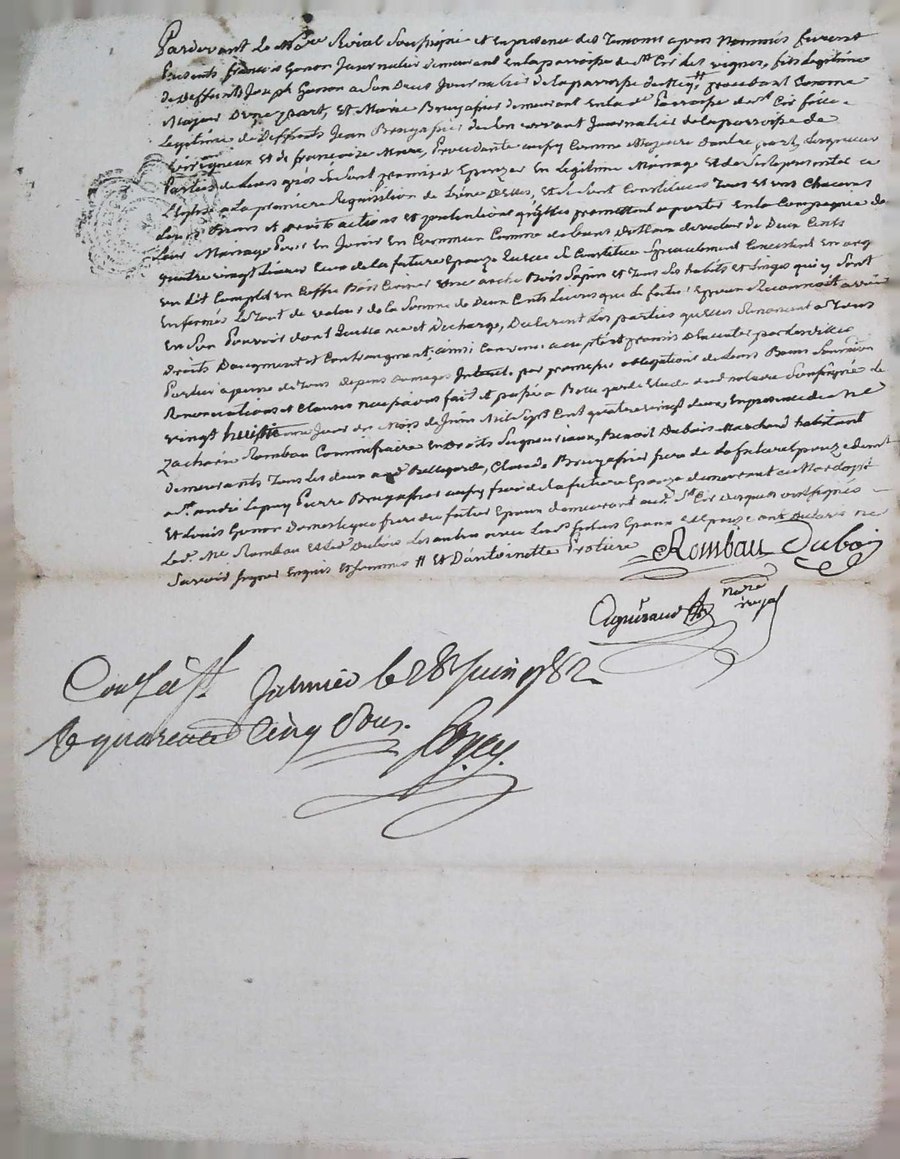 Pardevant le No.re Roial Soussigné et En presence des Temoins apres Nommés furent
Presents françois Gonon Journalier demeurant En la parroisse de St Cir des vignes, fils Legitime
de Deffunts Joseph Gonon a Son Deces Journalier de la parroisse # procedant Comme
Majeur D'une part, Et Marie Bruyassier demeurant En la de parroisse de St Cir fille
Legitime de Deffunts Jean Bruyassier de Son vivant Journalier de la parroisse de
Virigneux et de françoise Procedante aussy Comme Majeure D'autre part, Lesquelles
Parties de Leurs grés Se Sont promises Epouzer En Legitime Mariage Et de Se Representer a
L'Eglise a La premiere Requisition de L'une D'elles, Et Se Sont Constitués Tous Et uns Chacuns
Leurs Biens et Droits actions et pretentions qu'elles promettent aporter En la Compagnie de
Leur Mariage pour En Jouir En Commun Comme de Leurs Dot de valeur de Deux Cents
quatre vingt Livres Ceux de la future Epouze Laquelle Se Constitue Specialement Consistant En
un Lit Complet un Coffre Bois Une arche Bois Sapin et Tous Les habits et Linges qui y Sont
Enfermés Le Tout de valeur de la Somme de Deux Cents Livres que Le futur Epoux Reconnoit avoir
En Son Pouvoir dont Quittance et Decharge, Declarent Les parties qu'elles Renoncent a Tous
Droits D'augment et Contraugment; ainsi Convenu accepté et promis D'Executer par Lesdittes
Parties a peine de Tous Depens Domages Interets par promesses obligations de Leurs Biens Soumissions
Renonciations et Clauses necessaires fait et passé a Bellegarde Etude dud notaire Soussigné Le
vingt huitieme Jour du Mois de Juin Mil Sept Cent quatre vingt deux En presence de Me
Zacharie Rombau Commissaire En Droits Seigneuriaux, Benoit Dubois Marchand habitant
demeurants Tous Les deux aud Bellegarde, Claude Bruyassier frere de La future Epouze demt
a St andré Le puy Pierre Bruyassier aussy frere de la future Epouze demeurant au
Et Louis Gonon Domestique frere du futur Epoux demeurant aud. St Cir Lesquels ont Signés
Led. Me Rombau Et Led Dubois Les autres avec Lesd. futurs Epoux Et Epouze ont Declaré ne
Savoir Signer Enquis Et Sommés # Et D'antoinette Protiere
Rombau Dubois
nore
royal
Coulé à St Galmier le 28 Juin 1782
R quarente Cinq Sous.